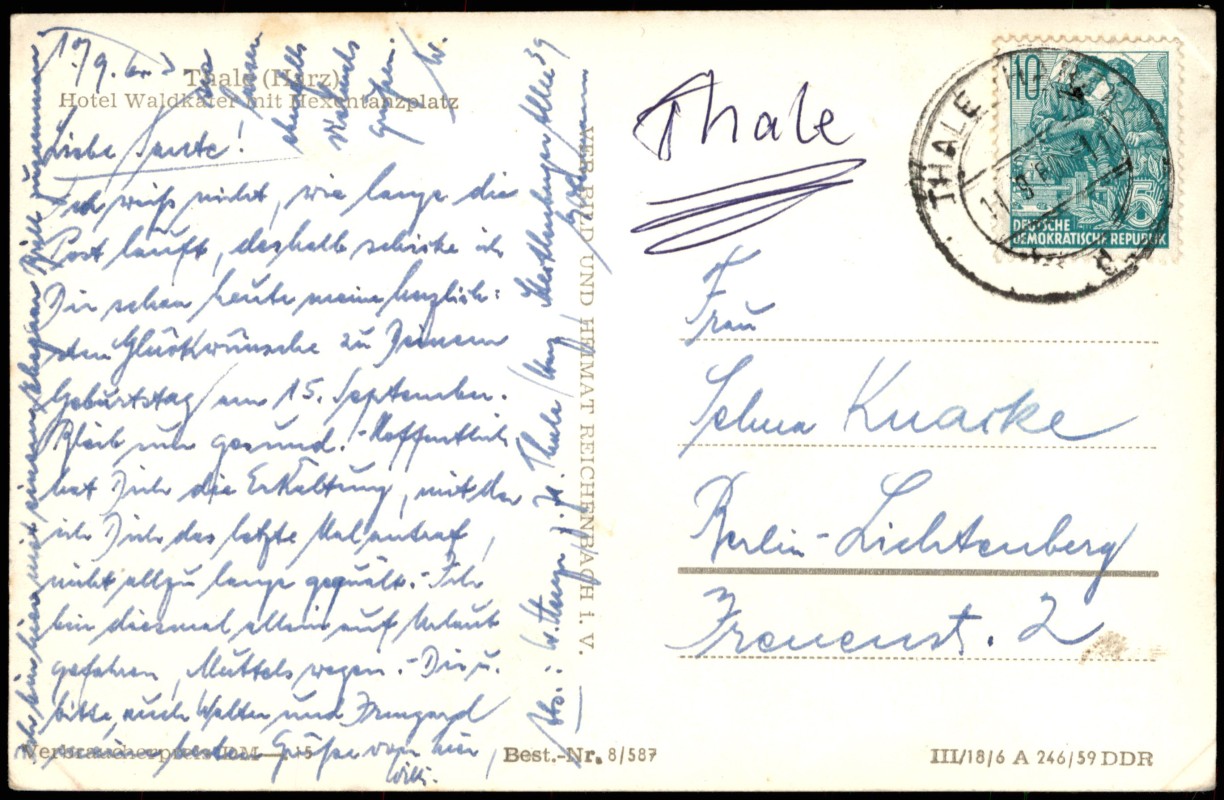 10/9. 60
Thale (Harz)
Hotel Waldkater mit Hexentanzplatz
Liebe Tante!
Ich weiß nicht, wie lange die
Post lauft, deshalb schicke ich
Dir schon heute meine herzlich:
sten Glückwünsche zu Deinem
Geburtstag am 15. September.
Bleib nur gesund! - Hoffentlich
hat Dich die Erkältung, mit der
ich Dich das letzte Mal antraf,
nicht allzu lange gequält. - Ich
bin diesmal allein auf Urlaub
gefahren, Muttels wegen. - Dir u.
bitte, auch Walter und Irmgard
Grüße von hier,
Willi.
Ich bin hier mit einem zusammen
lassen
ebenfalls
grüßen.
W.
Abs.: W. z. Zt. Thale/Harz
VEB BILD UND HEIMAT REICHENBACH i. V.
Verbraucherpreis DM —,15
Best.-Nr. 8/587
Thale
THALE (HARZ)
10
5
DEUTSCHE
DEMOKRATISCHE REPUBLIK
Frau
Selma Knaske
Berlin-Lichtenberg
Irenenst. 2
III/18/6 A 246/59 DDR